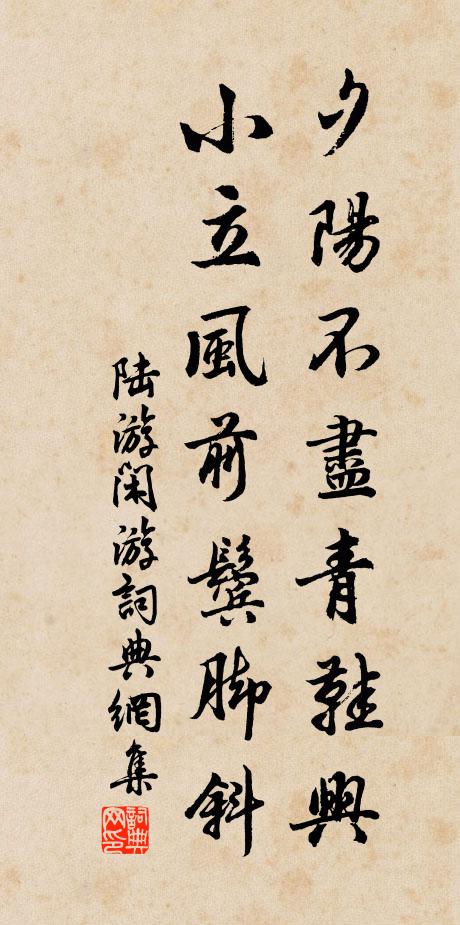 夕陽不盡青鞋興
小立風前鬢脚斜
陆游闲游詞典網集
詞典网印